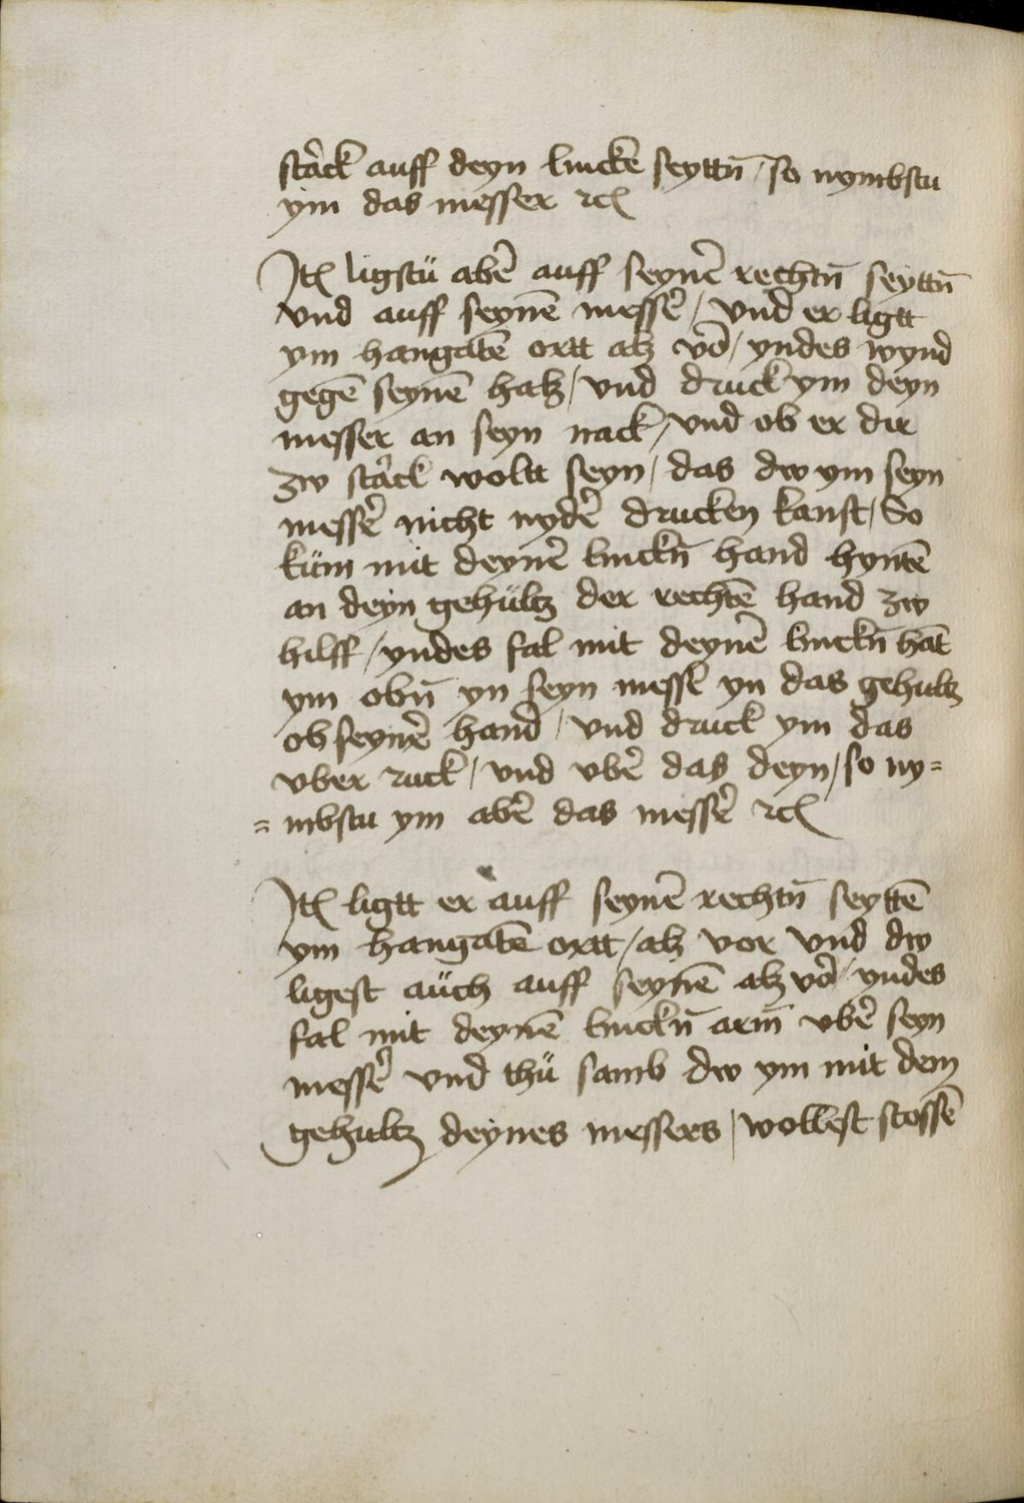 starck auff deyn lincke seyttñ / so nymbstu
ym das messer ꝛc
Itꝫ ligstü aber̃ auff seynẽ rechtñ seyttñ
vnd auff seynẽ messer̃ / vnd er ligtt
ym hangatẽ ortt alz vor̃ / yndes wynd
gegẽ seynẽ halz / vnd druck ym deyn
messer an seyn nack / vnd ob er dir
zw starck woltt seyn / das dw ym seyn
messer̃ nicht nyder̃ drucken kanst / So
küm mit deyner̃ linckñ hand hyntẽ
an deyn gehültz der rechtẽ hand zw
hilff / yndes fal mit deyner̃ linckñ hãt
ym obñ yn seyn messer̃ yn das gehultz
ob seyner̃ hand / vnd druck ym das
vber ruck / vnd vber̃ das deyn / so ny=
=mbstu ym aber̃ das messer̃ ꝛc
Itꝫ ligtt er auff seynẽ rechtñ seyttẽ
ym hangatẽ ortt / alz vor vnd dw
ligest aüch auff seynẽ alz vor̃ / yndes
fal mit deynẽ linckñ arm̃ vber̃ seyn
messer̃ vnd thü samb dw ym mit dem
gehultz deynes messers / wollest stossẽ